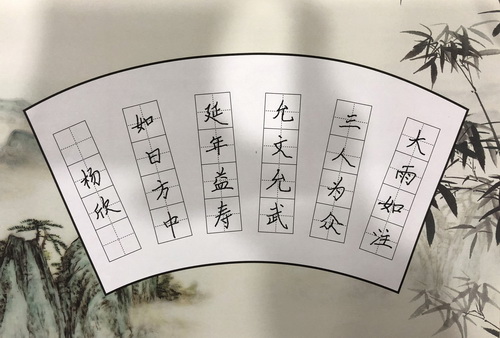 大雨如注
三人为众
允文允武
延年益寿
如日方中
杨欣